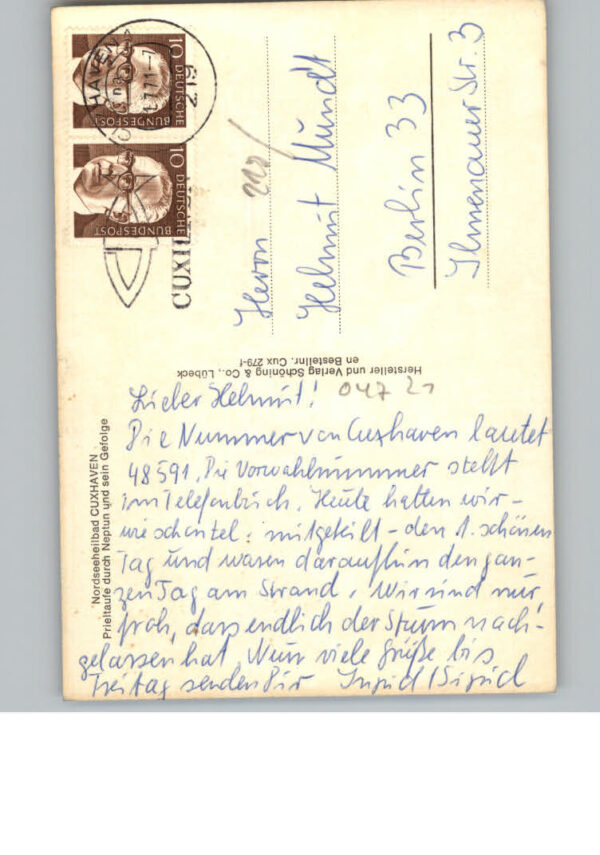 10 DEUTSCHE BUNDESPOST
10 DEUTSCHE BUNDESPOST
219
CUXHAVEN
Herrn
Helmut Mundt
Berlin 33
Ilmenauer Str. 3
Hersteller und Verlag Schöning & Co., Lübeck
en Bestellnr. Cux 279-f
Nordseeheilbad CUXHAVEN
Prieltaufe durch Neptun und sein Gefolge
Lieber Helmut! 047 21
Die Nummer von Cuxhaven lautet
48591. Die Vorwahlnummer steht
im Telefonbuch. Heute hatten wir -
wie schon tel. mitgeteilt - den 1. schönen
Tag und waren daraufhin den gan-
zen Tag am Strand. Wir sind nur
froh, dass endlich der Sturm nach-
gelassen hat. Nun viele Grüße bis
Freitag senden Dir Ingrid / Sigrid